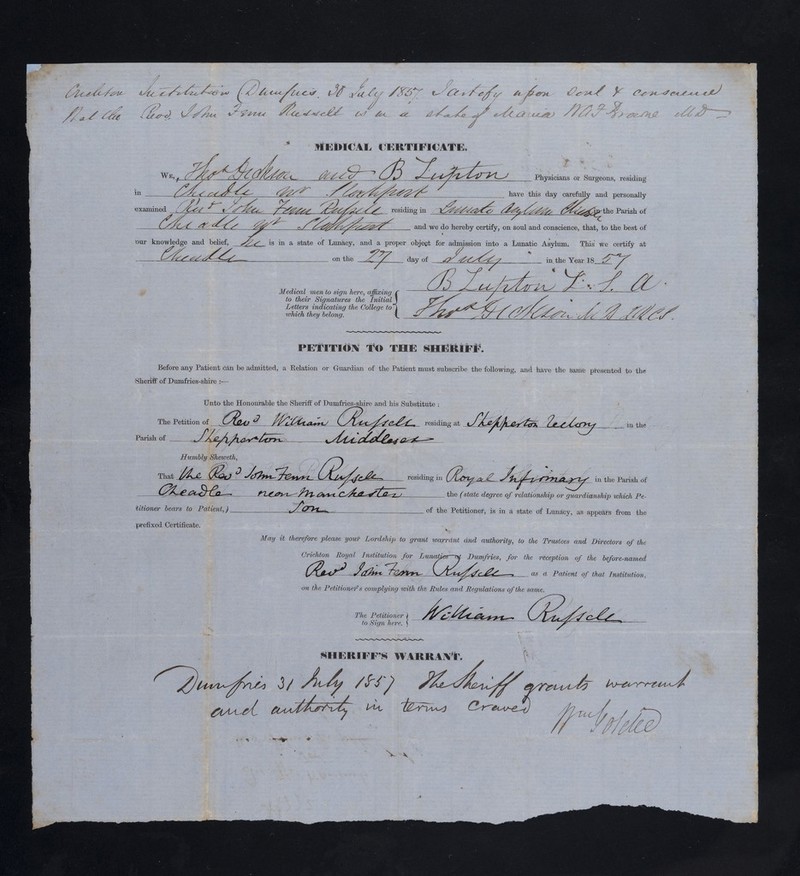 Crichton Institution Dumfries. 30 July 1857. I certify upon soul & conscience
that the Revd. John Fenn Russell is in a state of Mania W A F Browne MD
MEDICAL CERTIFICATE.
We, Thos Dickson and B Lupton Physicians or Surgeons, residing
in Cheadle nr Stockport have this day carefully and personally
examined Revd John Fenn Russell residing in Lunatic Asylum the Parish of
Cheadle nr Stockport and we do hereby certify, on soul and conscience, that, to the best of
our knowledge and belief, he is in a state of Lunacy, and a proper object for admission into a Lunatic Asylum. This we certify at
Cheadle on the 27 day of July in the Year 1857
Medical men to sign here, affixing
to their Signatures the Initial
Letters indicating the College to
which they belong.
B Lupton L. S. A.
Thos Dickson
PETITION TO THE SHERIFF.
Before any Patient can be admitted, a Relation or Guardian of the Patient must subscribe the following, and have the same presented to the
Sheriff of Dumfries-shire :—
Unto the Honourable the Sheriff of Dumfries-shire and his Substitute :
The Petition of Revd William Russell residing at Shepperton Rectory in the
Parish of Shepperton Middlesex
Humbly Sheweth,
That the Revd John Fenn Russell residing in Royal Infirmary in the Parish of
Cheadle near Manchester the (state degree of relationship or guardianship which Pe-
titioner bears to Patient,) Son of the Petitioner, is in a state of Lunacy, as appears from the
prefixed Certificate.
May it therefore please your Lordship to grant warrant and authority, to the Trustees and Directors of the
Crichton Royal Institution for Lunatics at Dumfries, for the reception of the before-named
Revd John Fenn Russell as a Patient of that Institution,
on the Petitioner's complying with the Rules and Regulations of the same.
The Petitioner
to Sign here.
William Russell
SHERIFF'S WARRANT.
Dumfries 31 July 1857 The Sheriff grants warrant
and authority in terms craved Wm Goldie